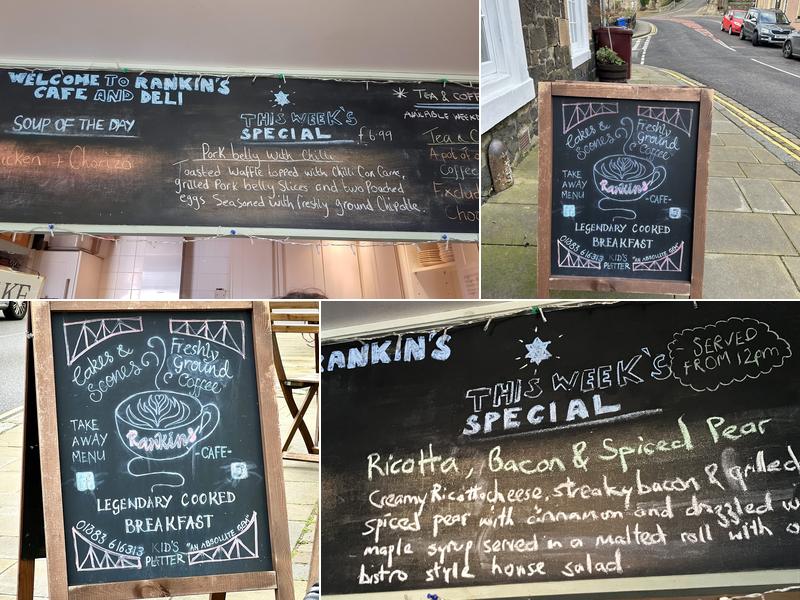 WELCOME TO RANKIN'S
CAFE AND DELI
SOUP OF THE DAY
+ Chorizo
THIS WEEK'S
SPECIAL £6.99
Pork belly with Chilli
Toasted Waffle topped with Chilli Con Carne,
grilled Pork belly Slices and two Poached
eggs Seasoned with freshly ground Chipotle.
TEA &
Tea &
A pot of
Coffee
Cakes &
Scones
Freshly
Ground
Coffee
Rankins
-CAFE-
TAKE
AWAY
MENU
LEGENDARY COOKED
BREAKFAST
01383 616313 KID'S
PLATTER
"AN ABSOLUTE GEM"
Cakes &
Scones
Freshly
Ground
Coffee
TAKE
AWAY
MENU
Rankins
-CAFE-
LEGENDARY COOKED
BREAKFAST
01383 616313 KID'S
PLATTER
"AN ABSOLUTE GEM"
RANKIN'S
THIS WEEK'S
SPECIAL
SERVED
FROM 12pm
Ricotta, Bacon & Spiced Pear
Creamy Ricotta cheese, streaky bacon & grilled
spiced pear with cinnamon and drizzled
maple syrup served in a malted roll with
bistro style house salad